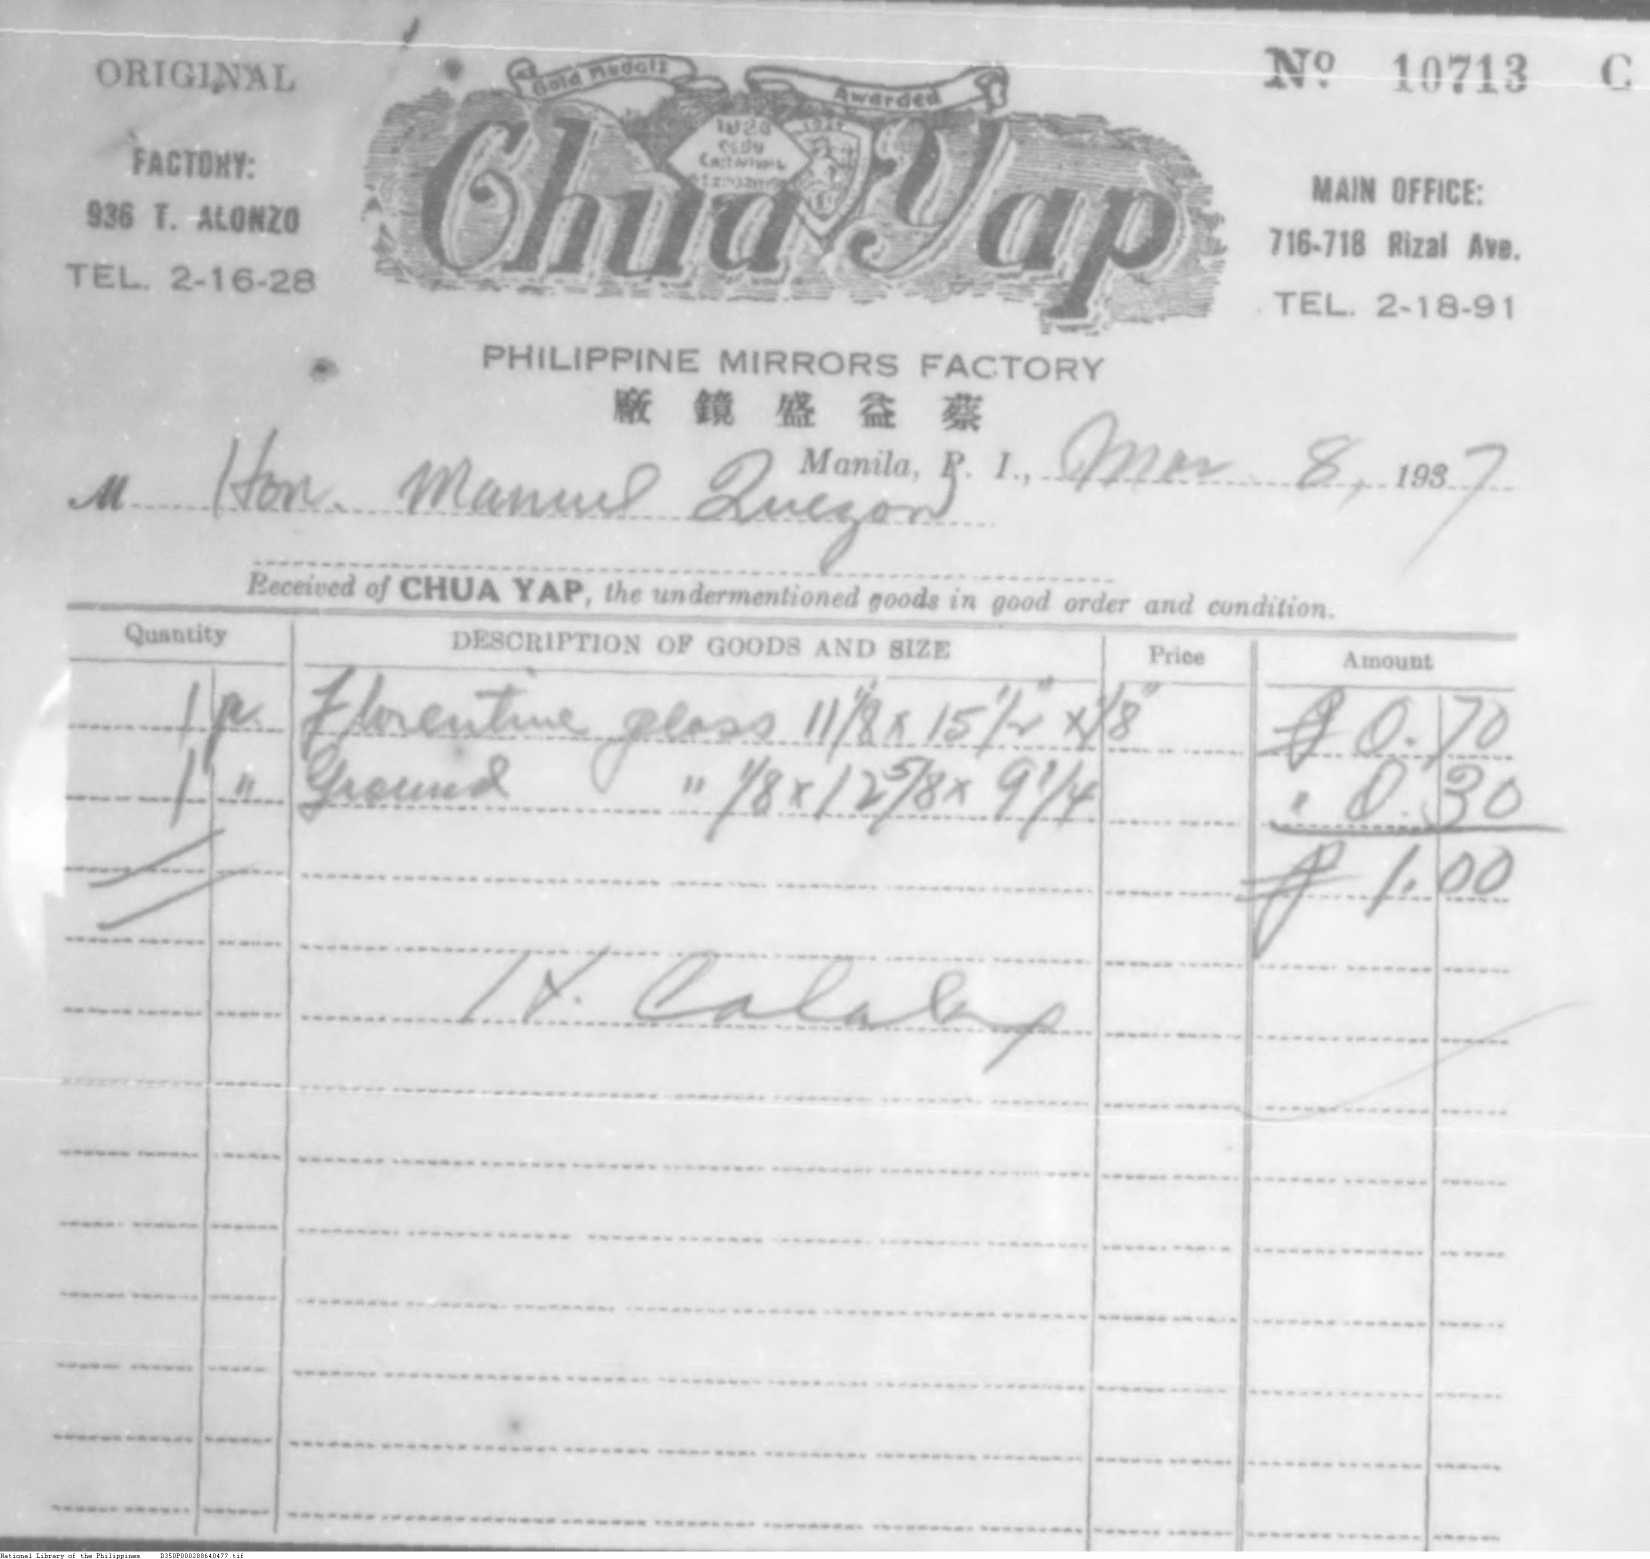 ORIGINAL
Nº 10713 C
Gold Medals Awarded
Chua Yap
FACTORY:
936 T. ALONZO
TEL. 2-16-28
MAIN OFFICE:
716-718 Rizal Ave.
TEL. 2-18-91
PHILIPPINE MIRRORS FACTORY
廠鏡盛益蔡
Manila, P. I., Mar 8, 1937
M Hon. Manuel Quezon
Received of CHUA YAP, the undermentioned goods in good order and condition.
Quantity DESCRIPTION OF GOODS AND SIZE Price Amount
1 p. Florentine glass 11 1/8 x 15 1/2" x 1/8" ₱ 0.70
1 " Ground " 1/8 x 12 5/8 x 9 1/4 " 0.30
₱ 1.00
National Library of the Philippines D350P000200640477.tif